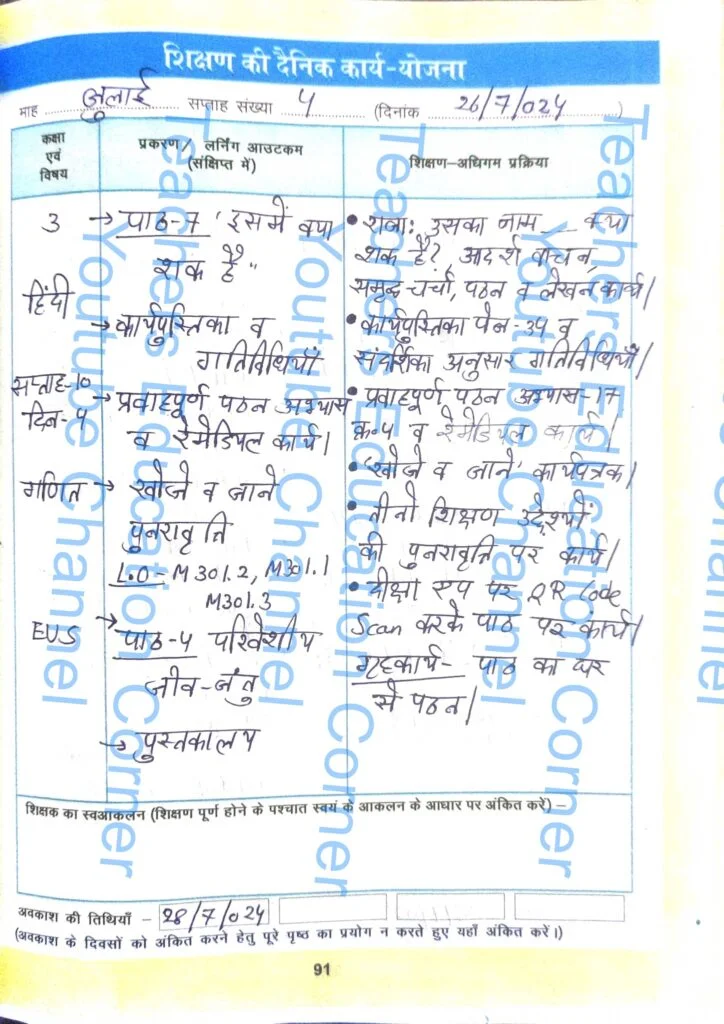 शिक्षण की दैनिक कार्य-योजना
माह जुलाई सप्ताह संख्या 4 (दिनांक 26/7/024)
कक्षा एवं विषय
प्रकरण/ लर्निंग आउटकम (संक्षिप्त में)
शिक्षण-अधिगम प्रक्रिया
3 → पाठ-7 'इसमें क्या
शक है"
हिंदी
→ कार्यपुस्तिका व
गतिविधियाँ
सप्ताह-10
दिन-4
→ प्रवाहपूर्ण पठन अभ्यास
व रेमेडियल कार्य।
गणित → खोजे व जाने
पुनरावृत्ति
L.O - M301.2, M301.1
M301.3
EVS → पाठ-4 परिवेशीय
जीव-जंतु
→ पुस्तकालय
• राजा: उसका नाम __ क्या
शक है?, आदर्श वाचन,
समृद्ध-चर्चा, पठन व लेखन कार्य।
• कार्यपुस्तिका पेज-34 व
संदर्शिका अनुसार गतिविधियाँ।
• प्रवाहपूर्ण पठन अभ्यास-17
क्र-4 व रेमेडियल कार्य।
• 'खोजे व जाने' कार्यपत्रक।
• तीनो शिक्षण उद्देश्यों
की पुनरावृत्ति पर कार्य।
• दीक्षा एप पर QR Code
Scan करके पाठ पर कार्य।
गृहकार्य- पाठ का घर
से पठन।
शिक्षक का स्वआकलन (शिक्षण पूर्ण होने के पश्चात स्वयं के आकलन के आधार पर अंकित करें) –
अवकाश की तिथियाँ – 28/7/024
(अवकाश के दिवसों को अंकित करने हेतु पूरे पृष्ठ का प्रयोग न करते हुए यहाँ अंकित करें।)
91
Teachers Education Corner
Youtube Channel
Teachers Education Corner
Youtube Channel